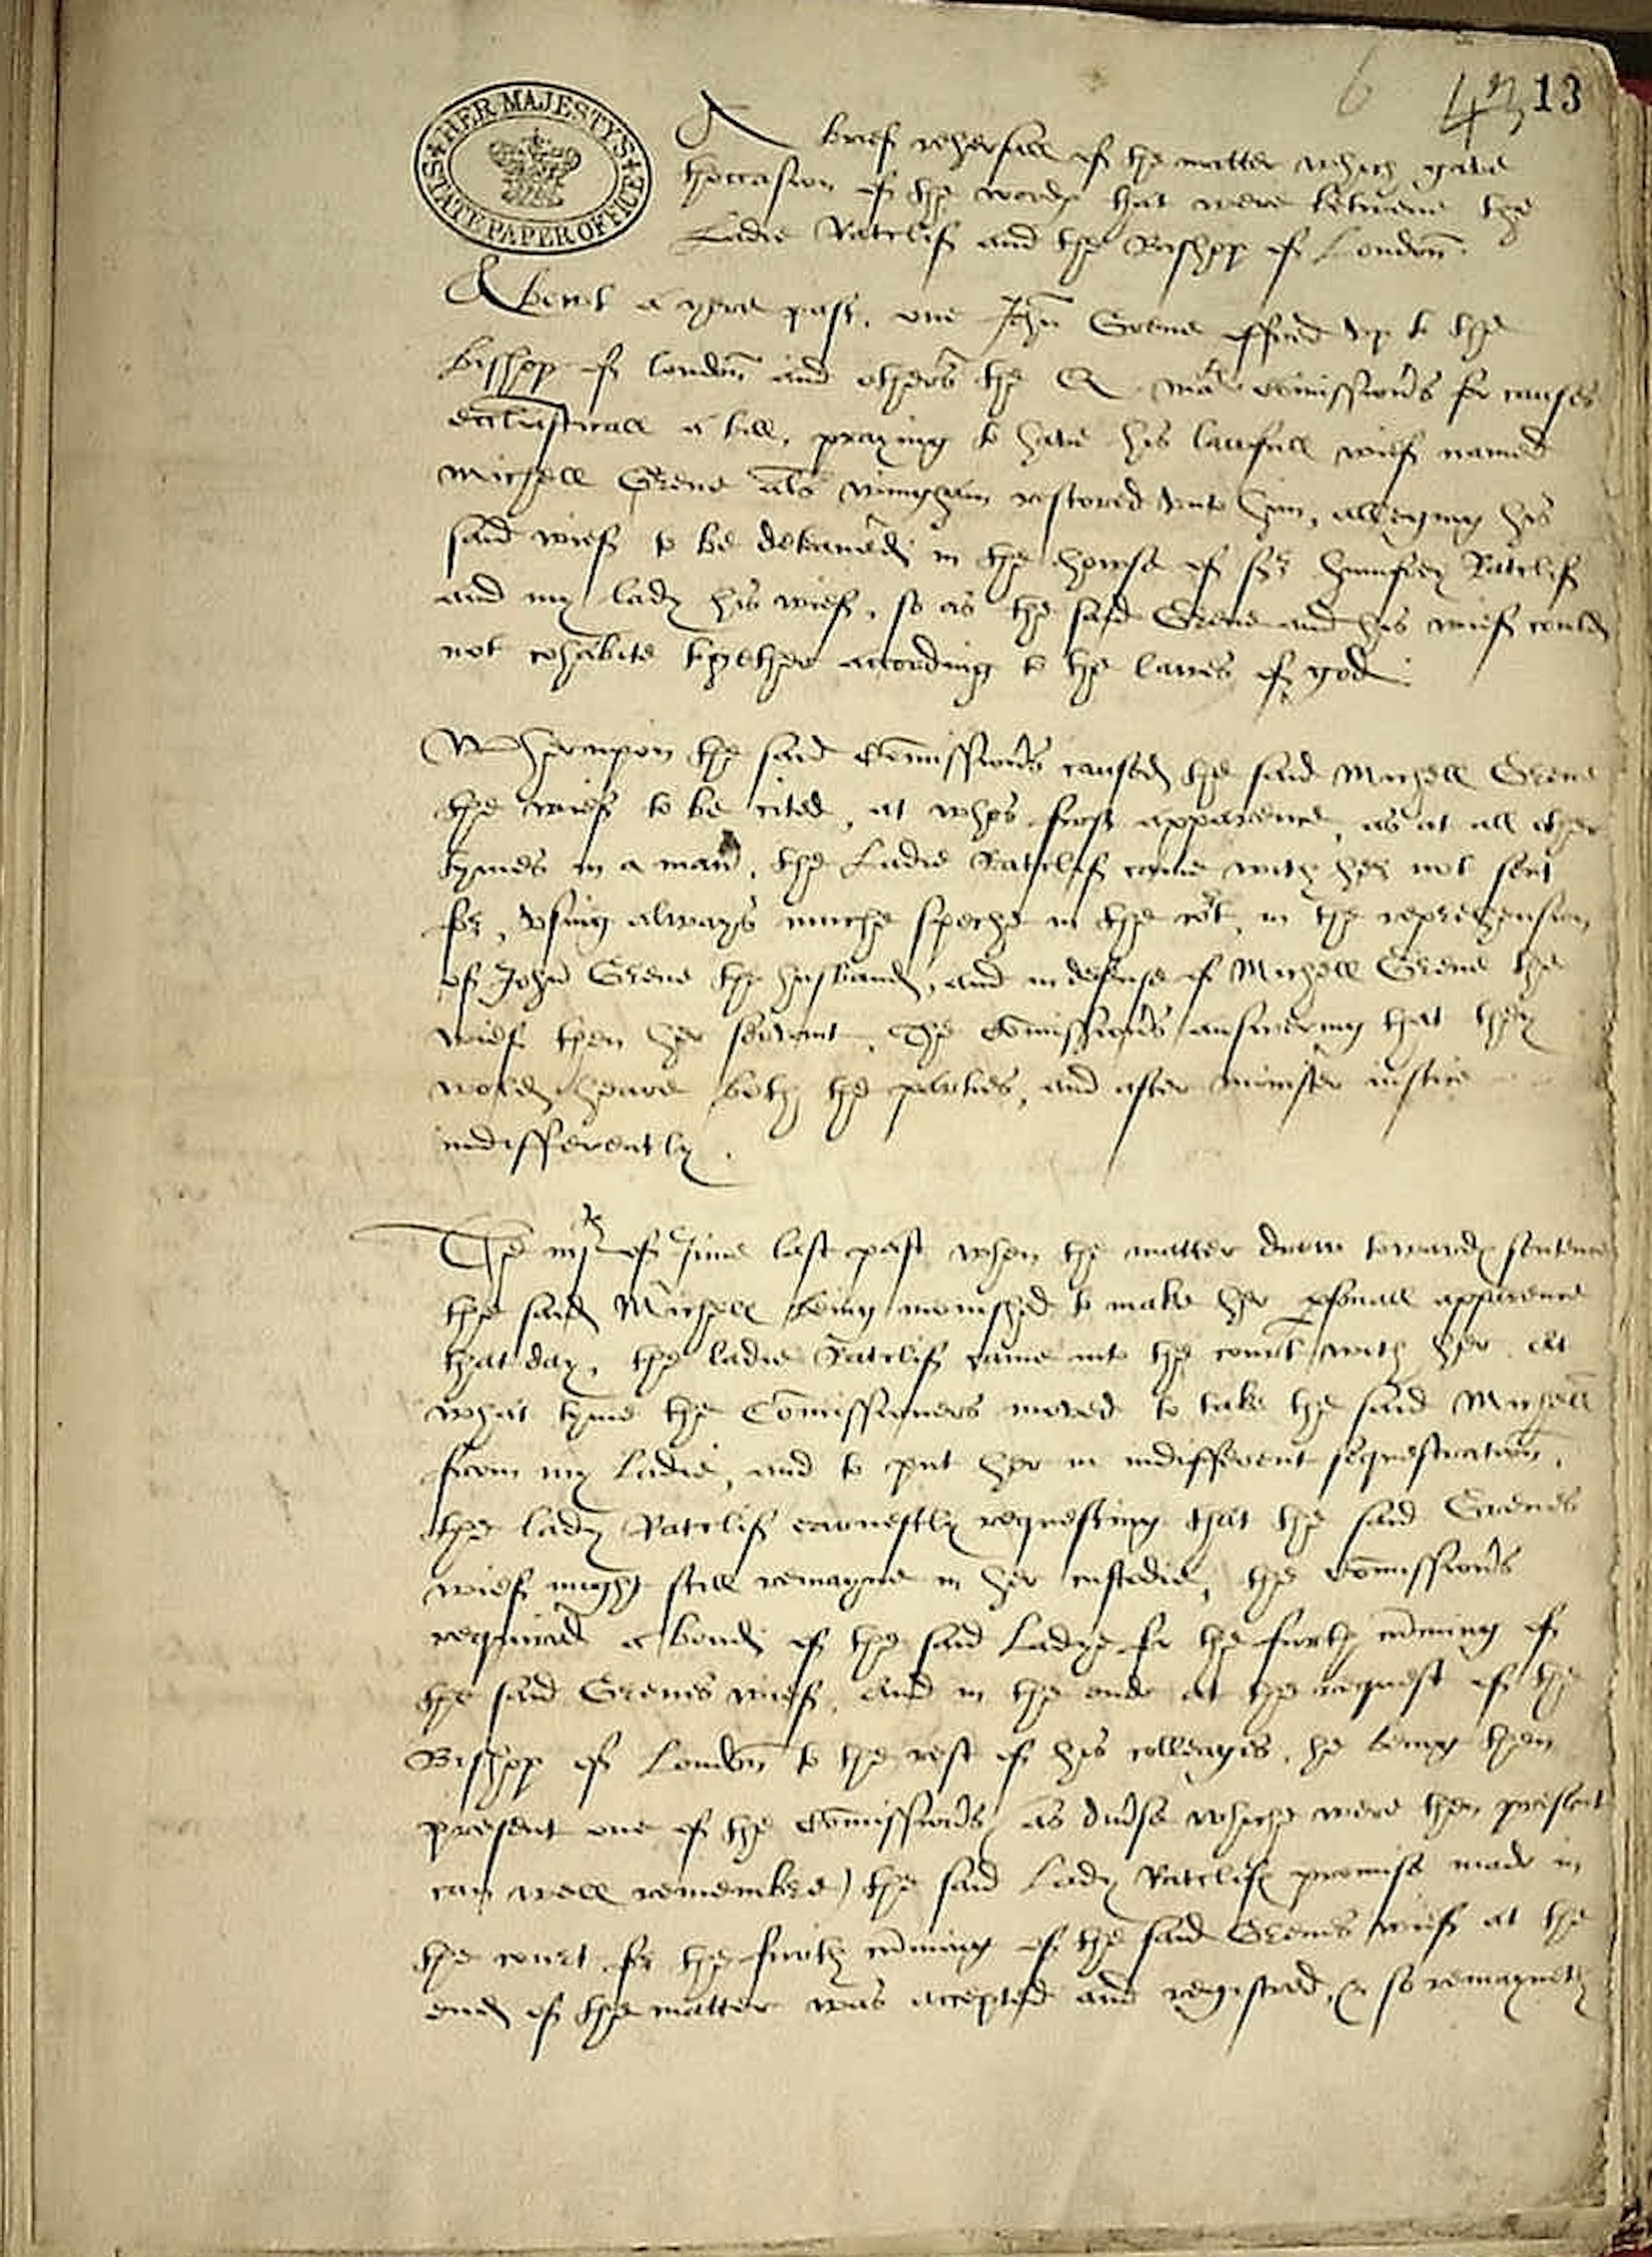 6 43 13
HER MAJESTY'S STATE PAPER OFFICE
A brief rehersall of the matter which gave
thoccasion of the words that were betwene the
Ladie Ratclif and the Bishop of London.
About a yere past, one John Grene offred up to the
bishop of london and others the Q. matꝭ comissionrs for causes
ecclasticall a bill, praying to have his laufull wief named
Michell Grene als restored unto him, alleging his
said wief to be detained in the howse of Sr Humfrey Ratclif
and my lady his wief, so as the said Grene and his wief could
not cohabite together according to the lawes of god.
Wherupon the said Comissionrs caused the said Michell Grene
the wief to be cited, at whos first apparence, as at all other
tymes in a maner, the Ladie Ratclif came with her not sent
for, using always muche speche in the cort, in the reprehension
of John Grene the husband, and in defense of Michell Grene the
wief then her servant. The Comissionrs answering that they
wold heare both the parties, and after minister justice
indifferently.
The of June last past when the matter drew towards sentence
the said Michell being monished to make her psonall apparence
that day, the ladie Ratclif came into the court with her. At
what tyme the Comissioners moved to take the said Michell
from my Ladie, and to put her in indifferent sequestration,
the lady Ratclif earnestly requesting that the said Grenes
wief might still remayne in her custodie, the Comissionrs
required a bond of the said Ladye for the furth coming of
the said Grenes wief, And in the ende at the request of the
Bishop of London to the rest of his colleages, he being then
present one of the Comissionrs (as divrse whiche were then present
can well remembre) the said Lady Ratclif promise made in
the court for the furth coming of the said Grenes wief at the
end of the matter was accepted and registred, & so remayneth